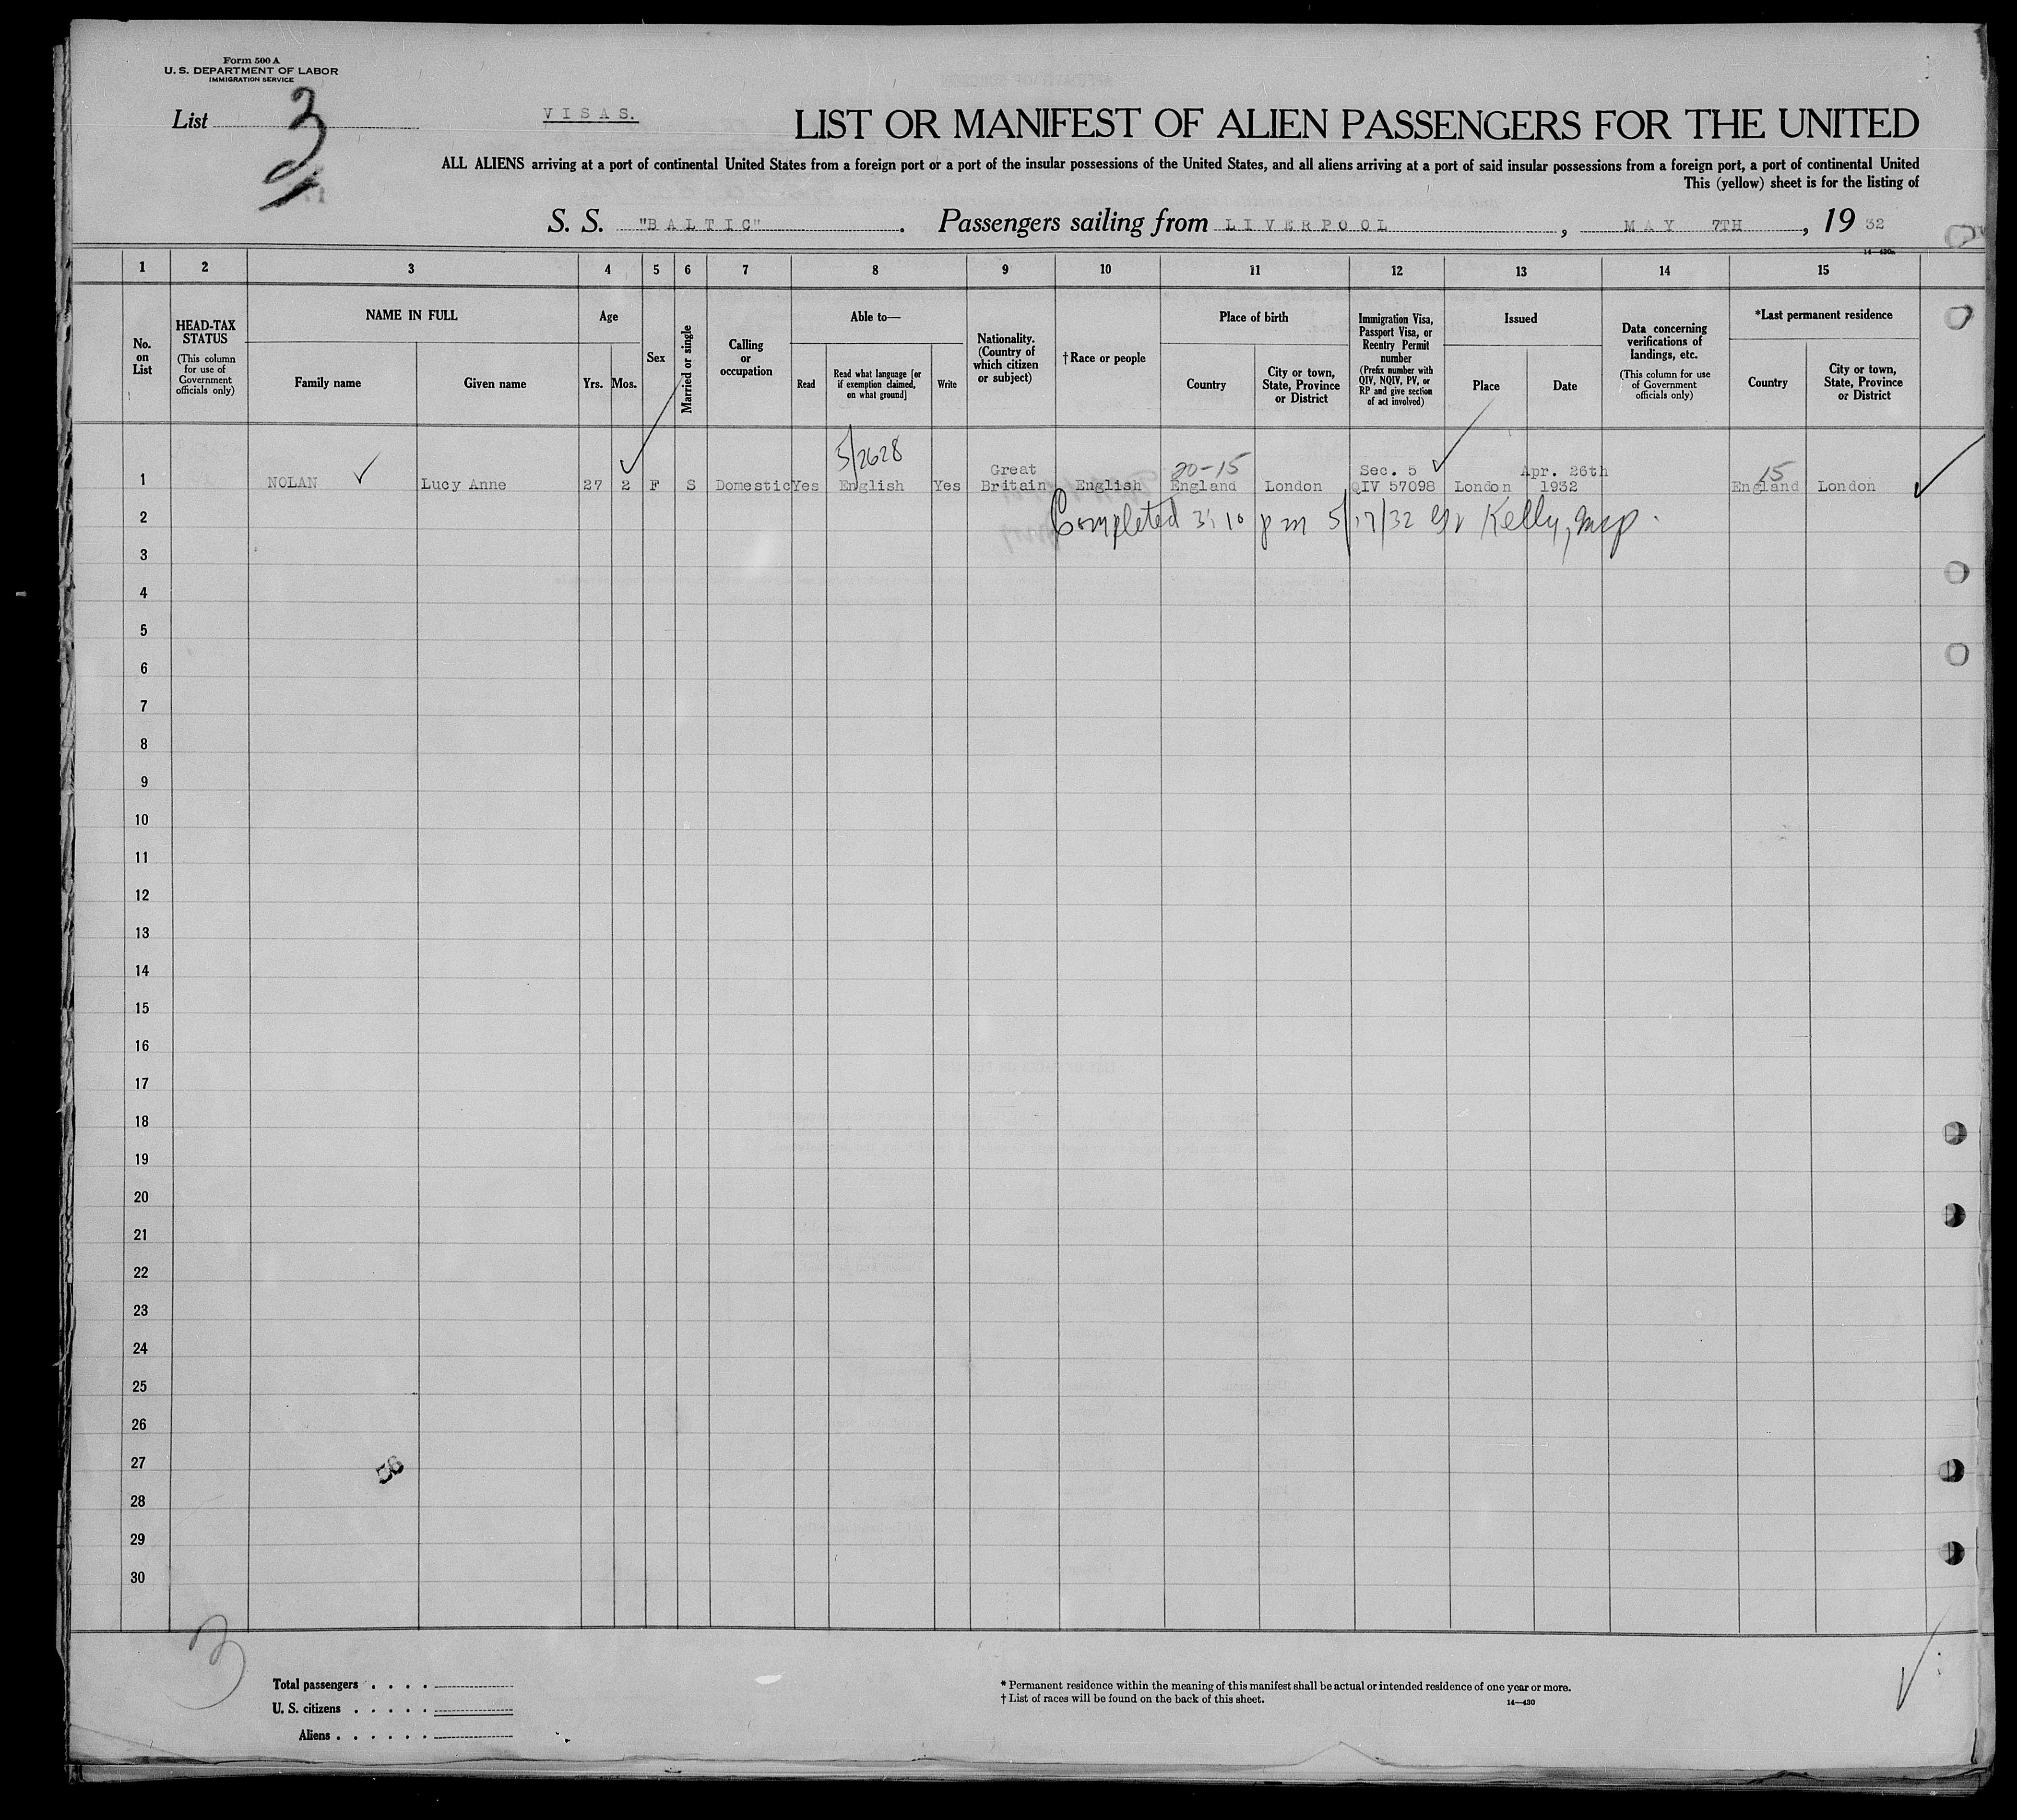 Form 500 A
U. S. DEPARTMENT OF LABOR
IMMIGRATION SERVICE
List 3
V I S A S.
LIST OR MANIFEST OF ALIEN PASSENGERS FOR THE UNITED
ALL ALIENS arriving at a port of continental United States from a foreign port or a port of the insular possessions of the United States, and all aliens arriving at a port of said insular possessions from a foreign port, a port of continental United
This (yellow) sheet is for the listing of
S. S. "B A L T I C" . Passengers sailing from L I V E R P O O L , M A Y 7TH , 19 32
14—430a
1 2 3 4 5 6 7 8 9 10 11 12 13 14 15
No. on List
HEAD-TAX STATUS
(This column for use of Government officials only)
NAME IN FULL
Family name
Given name
Age
Yrs.
Mos.
Sex
Married or single
Calling or occupation
Able to—
Read
Read what language [or if exemption claimed, on what ground]
Write
Nationality. (Country of which citizen or subject)
†Race or people
Place of birth
Country
City or town, State, Province or District
Immigration Visa, Passport Visa, or Reentry Permit number
(Prefix number with QIV, NQIV, PV, or RP and give section of act involved)
Issued
Place
Date
Data concerning verifications of landings, etc.
(This column for use of Government officials only)
*Last permanent residence
Country
City or town, State, Province or District
5/2628
Great 20-15 Sec. 5 Apr. 26th 15
1 NOLAN Lucy Anne 27 2 F S Domestic Yes English Yes Britain English England London QIV 57098 London 1932 England London
2 Completed 3:10 pm 5/17/32 Kelly,
3
4
5
6
7
8
9
10
11
12
13
14
15
16
17
18
19
20
21
22
23
24
25
26
27
56
28
29
30
3
Total passengers . . . .
U. S. citizens . . . . .
Aliens . . . . . .
* Permanent residence within the meaning of this manifest shall be actual or intended residence of one year or more.
† List of races will be found on the back of this sheet.
14—430